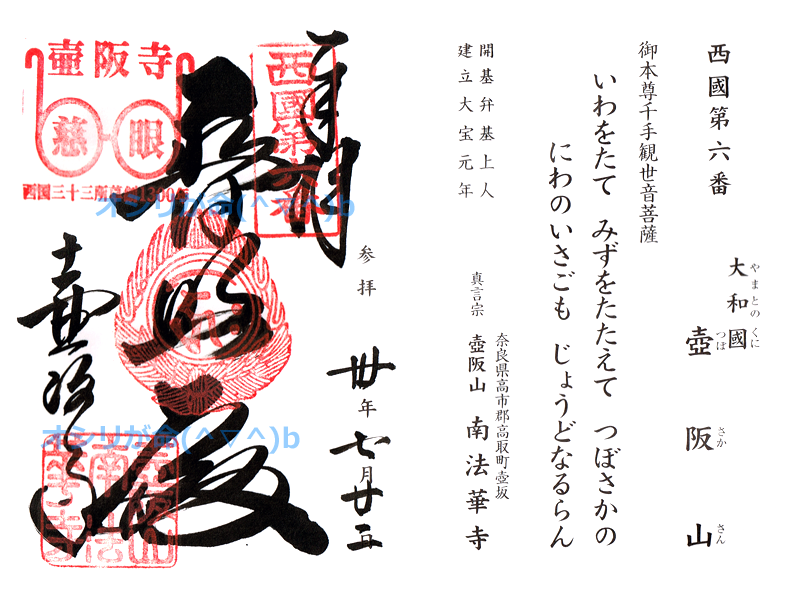 西國第六番
大和國
やまとの くに
壺阪山
つぼ さか さん
御本尊千手観世音菩薩
いわをたて みずをたたえて つぼさかの
にわのいさごも じょうどなるらん
開基弁基上人
建立大宝元年
奈良県高市郡高取町壺坂
真言宗 壺阪山 南法華寺
参拝
卅年七月廿五
奉拝
西國第六番
普照殿
壺阪寺
慈眼
西国三十三所草創1300年
壺阪寺
オシリが命(^▽^)b
オシリが命(^▽^)b